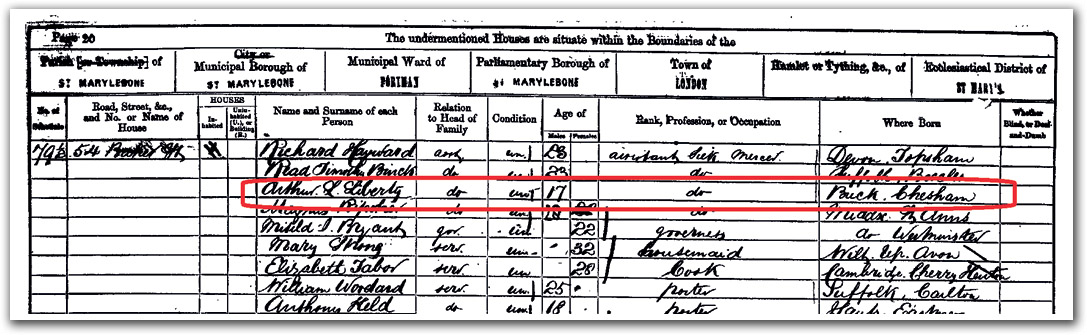 Page 20
The undermentioned Houses are situate within the Boundaries of the
Parish [or Township] of
City or Municipal Borough of
Municipal Ward of
Parliamentary Borough of
Town of
Hamlet or Tything, &c., of
Ecclesiastical District of
ST MARYLEBONE
ST MARYLEBONE
PORTMAN
ST MARYLEBONE
LONDON
ST MARY'S
No. of Schedule
Road, Street, &c., and No. or Name of House
HOUSES
In-habited
Unin-habited (U.), or Building (B.)
Name and Surname of each Person
Relation to Head of Family
Condition
Age of
Males
Females
Rank, Profession, or Occupation
Where Born
Whether Blind, or Deaf-and-Dumb
54
Richard Hayward asst un 23 assistant Silk Mercer Devon Topsham
do 23 do Suffolk Beccles
Arthur L. Liberty do un 17 do Buck. Chesham
do 18 do Middx St Anns
Bryant gov. un 22 governess do Westminster
Mary serv. un 32 housemaid Wilt. Up. Avon
Elizabeth Tabor serv. un 28 Cook Cambridge. Cherry Hinton
William Woodard serv. un 25 porter Suffolk. Carlton
Anthony Held do 18 porter